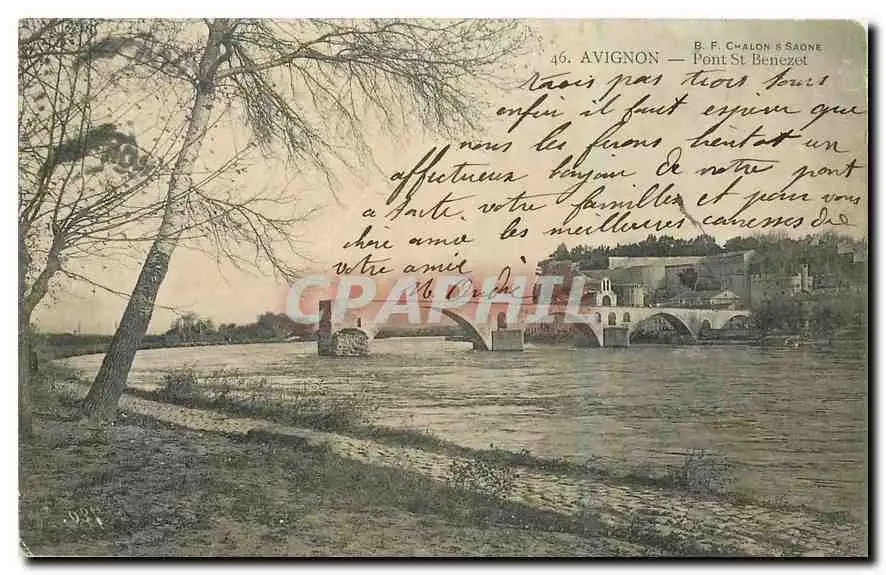 B. F. CHALON S SAONE
46. AVIGNON — Pont St Benezet
mais pas trois jours
enfin il faut esperer que
nous les ferons bientot un
affectueux bonjour de notre part
a toute votre familles et pour vous
chère amie les meilleures caresses de
votre amie
CPARAMA